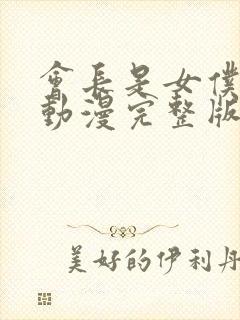 會長是女僕
動漫完整版
美好的伊利丹